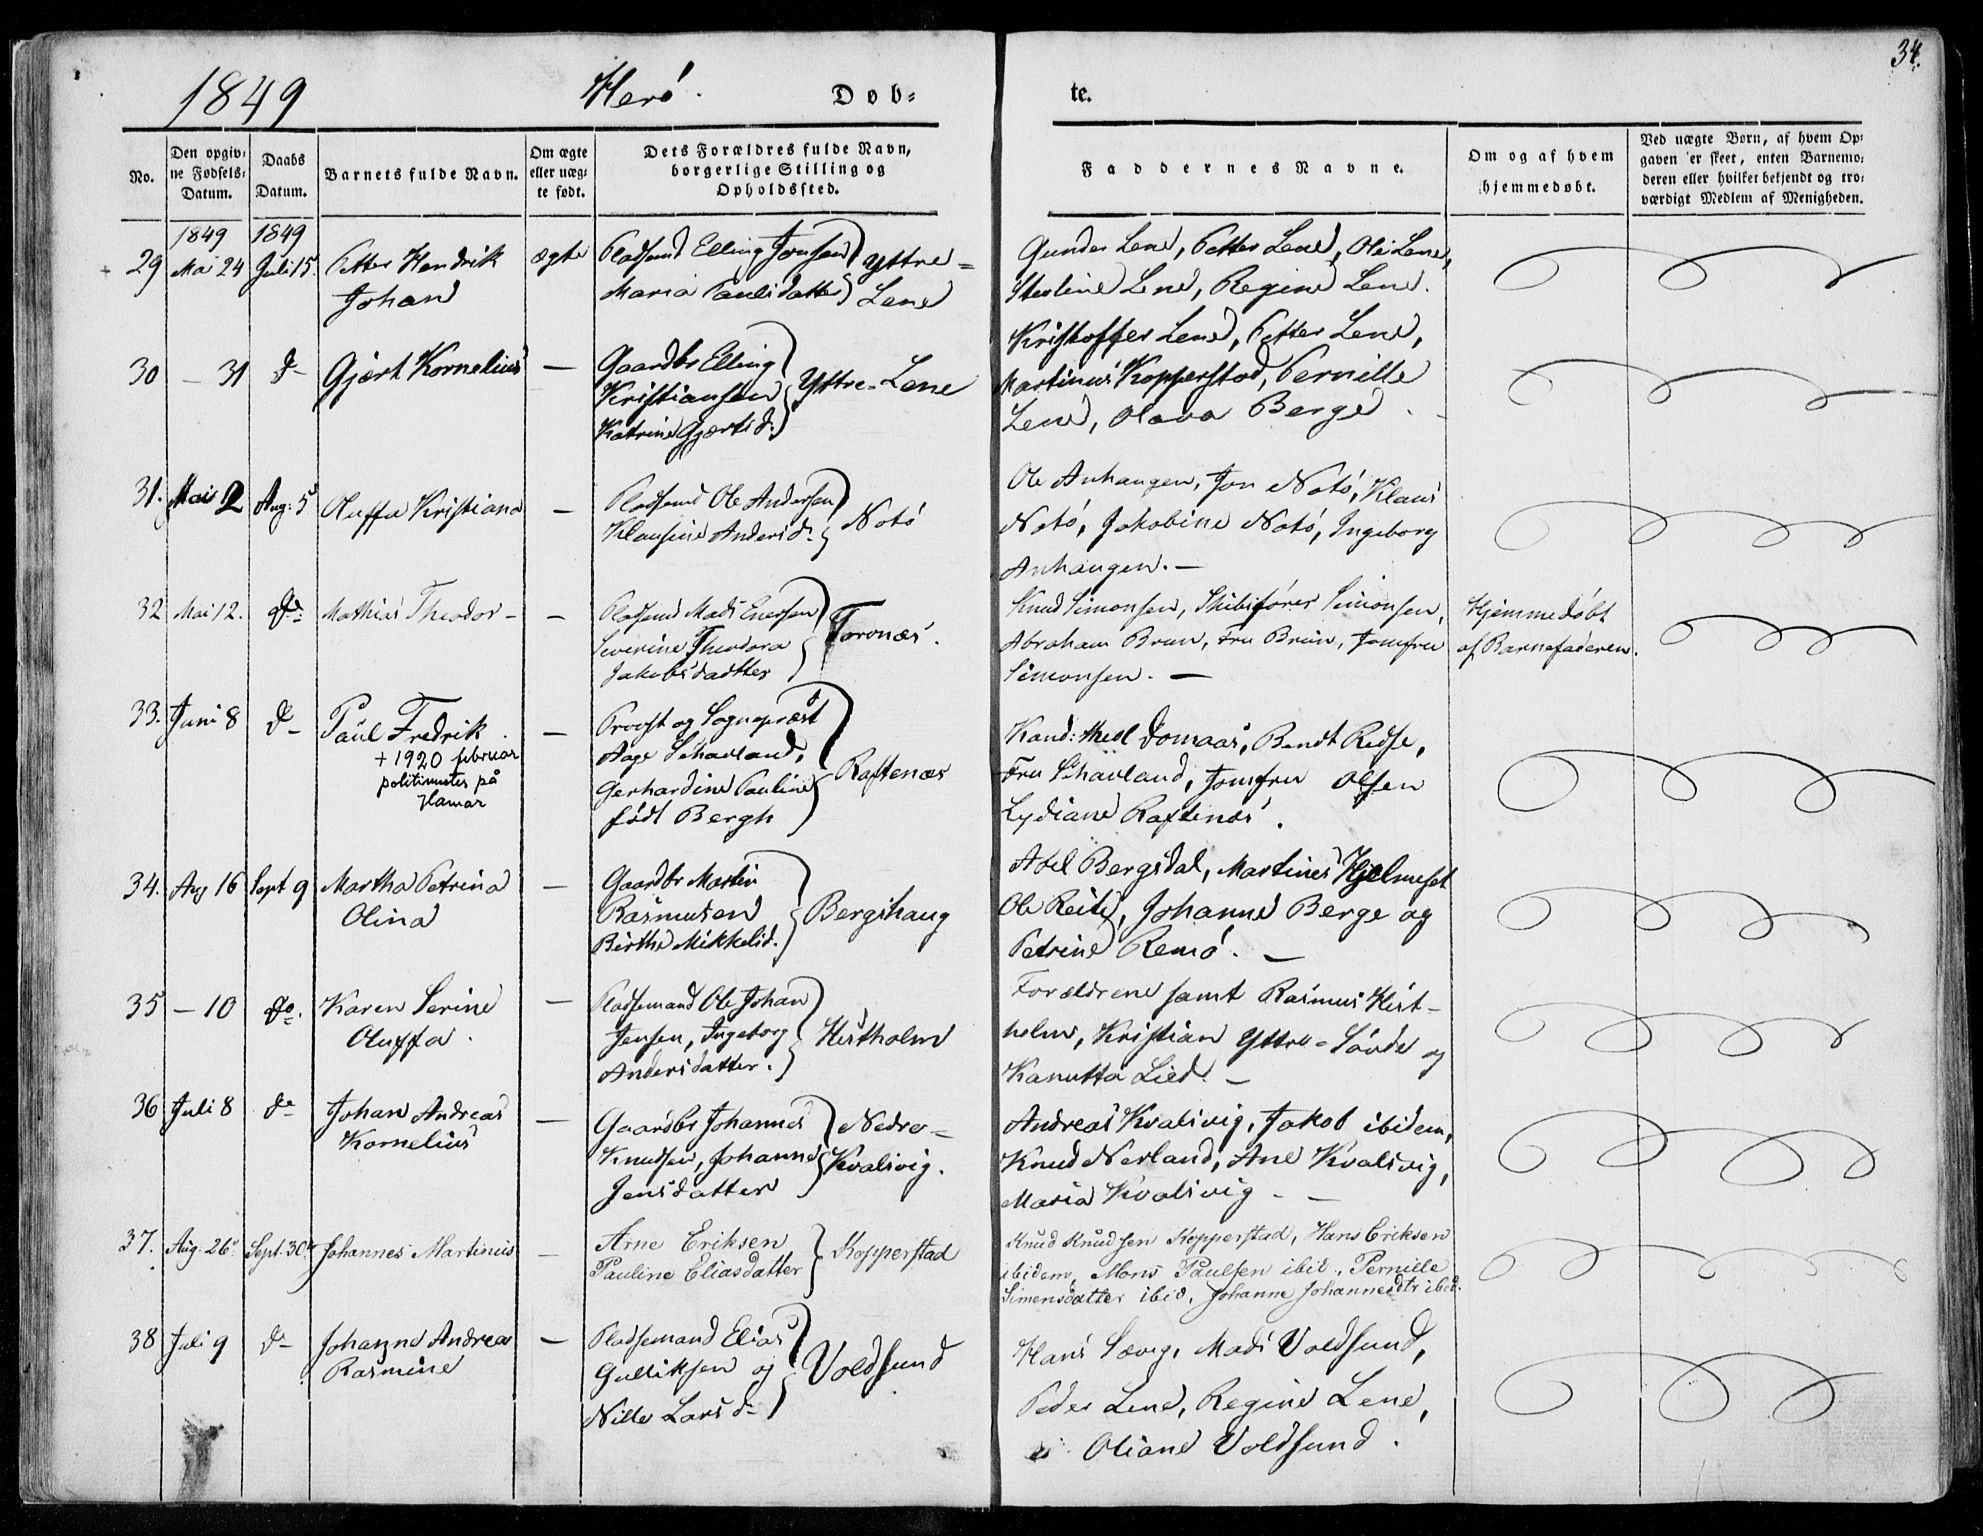 1849 Herö. Døb=
te. 34.
No. Den opgiv=ne Fødsels=Datum. Daabs Datum. Barnets fulde Navn. Om ægte eller uæg=te født. Dets Forældres fulde Navn, borgerlige Stilling og Opholdssted.
Faddernes Navne. Om og af hvem hjemmedøbt. Ved uægte Børn, af hvem Op=gaven er skeet, enten Barnemo=deren eller hvilket bekjendt og tro=værdigt Medlem af Menigheden.
1849 1849
29 Mai 24 Juli 15 Petter Hendrik ægte Pladsemd Elling Jonsen Yttre=
Johan Maria Paulsdatter Lene
Gunder Lene, Petter Lene, Ole Lene,
Lene, Regine Lene.
30 – 31 do Gjært Kornelius — Gaardbr Elling
Kristiansen Yttre=Lene
Katrine Gjærtsd.
Kristoffer Lene, Petter Lene,
Martinus Kopperstad, Pernille
Lene, Olava Berge.
31. Mai 2 Aug: 5 Oluffa Kristiana — Pladsemd Ole Andersen
Klausine Andersd. Notö
Ole Anhaugen, Jon Notö, Klaus
Notö, Jakobine Notö, Ingeborg
Anhaugen. —
32 Mai 12. do Mathias Theodor — — Pladsemd Mads Enersen
Severine Theodora Tornæs.
Jakobsdadtter
Knud Simonsen, Skibsförer Simonsen,
Abraham Brun, Fru Brun, Jomfru
Simonsen. —
Hjemmedöbt
af Barnefaderen.
33. Juni 8 do Paul Fredrik — Provst og Sognepræst
+ 1920 februar
politimester på
Hamar
Aage Schavland,
Gerhardine Pauline Raftenæs
född Bergh
Kand: theol Domaas, Bendt Redse,
Fru Schavland, Jomfru Olsen
Lydiane Raftenæs.
34. Aug 16 Sept 9 Martha Petrina — Gaardbr Martin
Olina Rasmusen Bergshaug
Birthe Mikkelsd.
Abel Bergsdal, Martines Hjelmeset
Ole Reite, Johanne Berge og
Petrine Remö. —
35 – 10 do. Karen Serine — Pladsemand Ole Johan
Oluffa. Jensen, Ingeborg Hestholm
Andersdatter.
Forældrene samt Rasmus Hest-
holm, Kristian Yttre=Sövde og
Kanutta Lied. —
36 Juli 8 do Johan Andreas — Gaardbr Johannes Nedre—
Kornelius Knudsen, Johanne Kvalsvig.
Jensdatter
Andreas Kvalsvig, Jakob ibidem,
Knud Nerland, Ane Kvalsvig,
Maria Kvalsvig — —
37. Aug. 26. Sept. 30. Johannes Martinus — Arne Eriksen
Pauline Eliasdatter Kopperstad
Knud Knudsen Kopperstad, Hans Eriksen
ibidem, Mons Paulsen ibid, Pernille
Simensdatter ibid, Johanne Johannesdtr ibid.
38 Juli 9 do Johanne Andrea — Pladsemand Elias
Rasmine Gulliksen og Voldsund
Nille Larsd.
Hans Sævig, Mads Voldsund,
Peder Lene, Regine Lene,
Oliane Voldsund.